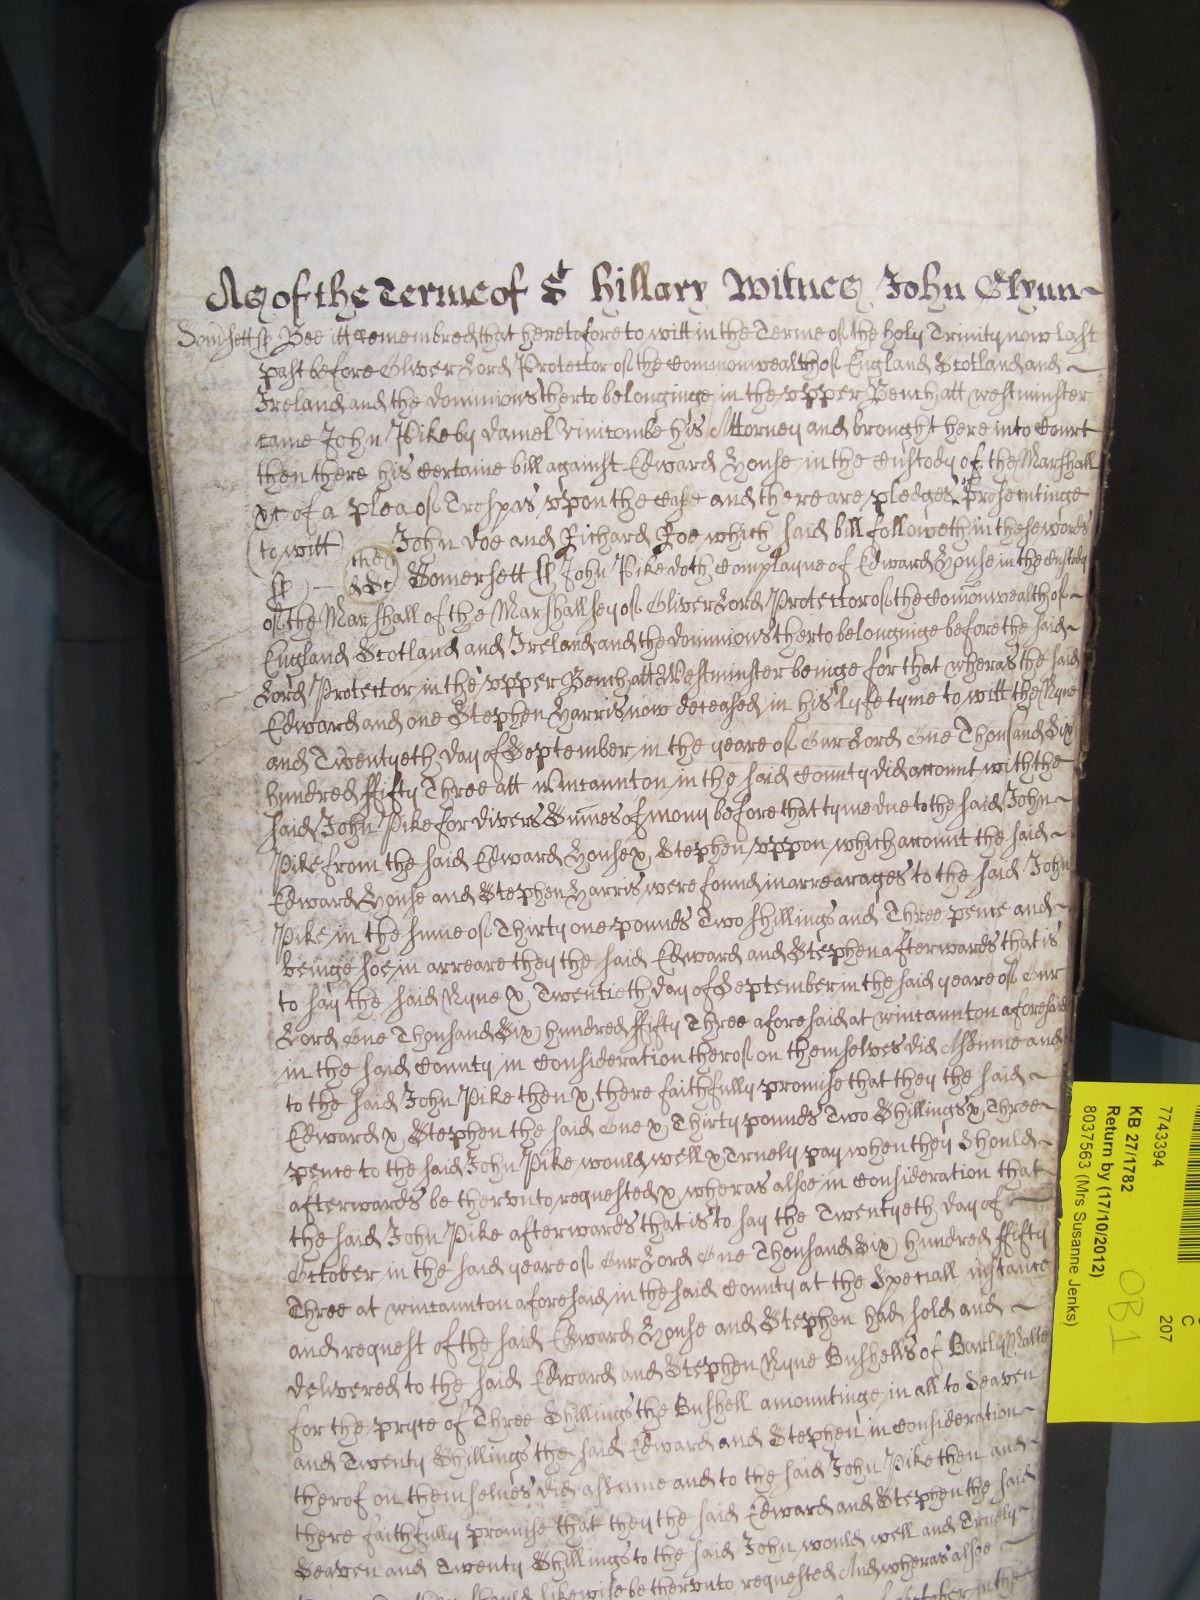 As of the Terme of St Hillary Witnes John Glynn
Somersett ss Bee itt remembred that heretofore to witt in the Terme of the holy Trinity now last
past before Oliver Lord Protector of the Commonwealth of England Scotland and
Ireland and the dominions therto belonginge in the upper Bench att westminster
came John Pike by Daniel Vinicombe his Attorney and brought here into Court
then there his certaine bill against Edward House in the Custody of the Marshall
&c of a plea of Trespas upon the Case and there are pledges of Prosecutinge
to witt John Doe and Richard Roe which said bill followeth in these words
ss Somersett ss John Pike doth Complayne of Edward House in the Custody
of the Marshall of the Marshallsey of Oliver Lord Protector of the Comonwealth of
England Scotland and Ireland and the dominions therto belonginge before the said
Lord Protector in the upper Bench att Westminster beinge for that wheras the said
Edward and one Stephen Harris now deceased in his lyfe tyme to witt the Nyne
and Twentyeth day of September in the yeare of Our Lord One Thousand Six
hundred ffifty Three att Wincaunton in the said County did account with the
said John Pike for divers Sumes of mony before that tyme due to the said John
Pike from the said Edward House & Stephen uppon which account the said
Edward House and Stephen Harris were found in arrearages to the said John
Pike in the sume of Thirty one pounds Two shillings and Three pence and
beinge soe in arreare they the said Edward and Stephen afterwards that is
to say the said Nyne & Twentieth day of September in the said yeare of Our
Lord One Thousand Six hundred ffifty Three aforesaid at wincaunton aforesaid
in the said County in Consideration therof on themselves did Assume and
to the said John Pike then & there faithfully promise that they the said
Edward & Stephen the said One & Thirty pounds Two Shillings & Three
pence to the said John Pike would well & Truely pay when they Should
afterwards be therunto requested & wheras alsoe in Consideration that
the said John Pike afterwards that is to say the Twentyeth day of
October in the said yeare of Our Lord One Thousand Six hundred ffifty
Three at wincaunton aforesaid in the said County at the Speciall instance
and request of the said Edward House and Stephen had sold and
delivered to the said Edward and Stephen Nyne Bushells of Barly Malte
for the pryce of Three Shillings the Bushell amountinge in all to Seaven
and Twenty Shillings the said Edward and Stephen in Consideration
therof on themselves did assume and to the said John Pike then and
there faithfully promise that they the said Edward and Stephen the said
Seaven and Twenty Shillings to the said John would well and Truely
likewise be therunto requested And wheras alsoe
October in the
7743394
KB 27/1782
Return by (17/10/2012)
8037563 (Mrs Susanne Jenks)
C
207
OB1